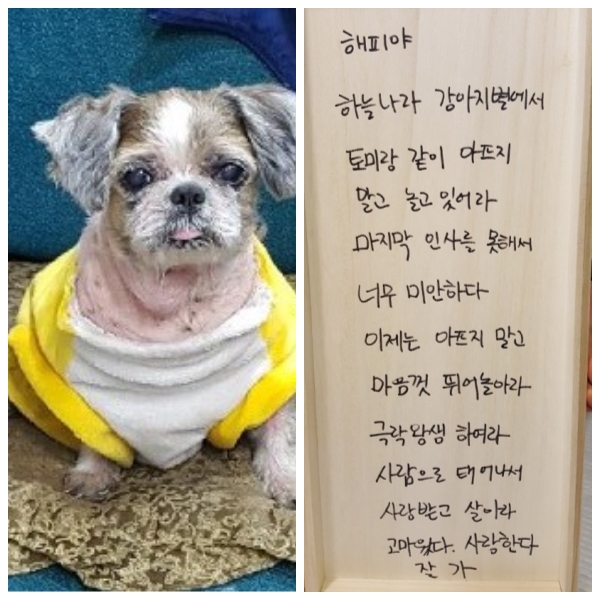 해피야
하늘나라 강아지별에서
토미랑 같이 아프지
말고 놀고 있어라
마지막 인사를 못해서
너무 미안하다
이제는 아프지 말고
마음껏 뛰어놀아라
극락왕생 하여라
사람으로 태어나서
사랑받고 살아라
고마웠다. 사랑한다
잘 가